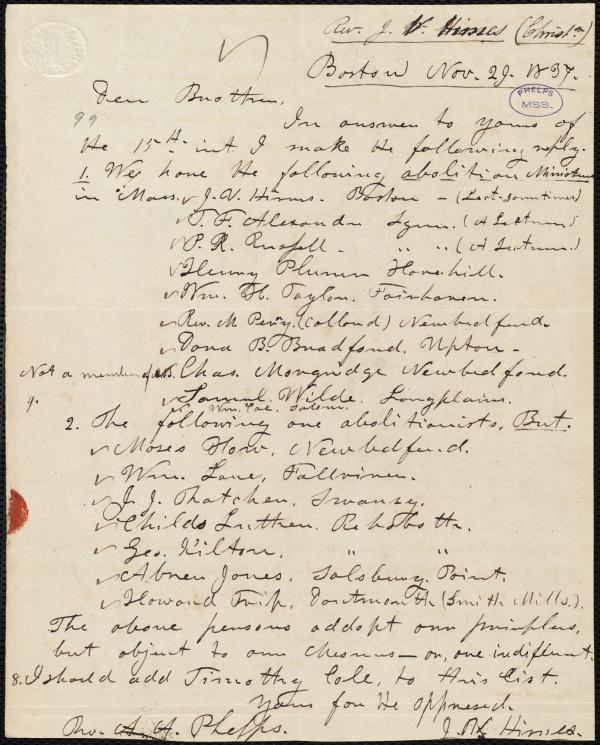 Rev. J. V. Himes (Christn)
Boston Nov. 29. 1837.
PHELPS
MSS.
Dear Brother,
99
In answer to yours of
the 15th. int. I make the following reply.
1. We have the following abolition Ministers
in Mass. J. V. Himes. Boston - (Lect. sometimes)
T. F. Alexander Lynn. (A Lecturer)
P. R. Russell. " " (A Lecturer)
Henry Plumer Haverhill.
Wm. H. Taylor. Fairhaven.
Rev. M Perry. (collord) Newbedford.
Dana B. Bradford. Upton -
Not a member of
Chas. Morgridge Newbedford.
9.
Samuel Wilde. Longplains.
Wm. Coe. Salem.
2. The following are abolitionists, But.
Moses How, Newbedford.
Wm. Lane, Fallriver.
J. J. Thatcher, Swansey.
Childs Luther. Rehoboth.
Geo. Kilton, " "
Abner Jones. Salsbury Point.
Howard Trip, Dartmouth (Smith Mills).
The above persons addopt our prinples,
but object to our measures - or, are indifferent.
8. I should add Timothy Cole, to this List.
Yours for the oppressed.
Rev. A. A. Phelps.
J. V. Himes.